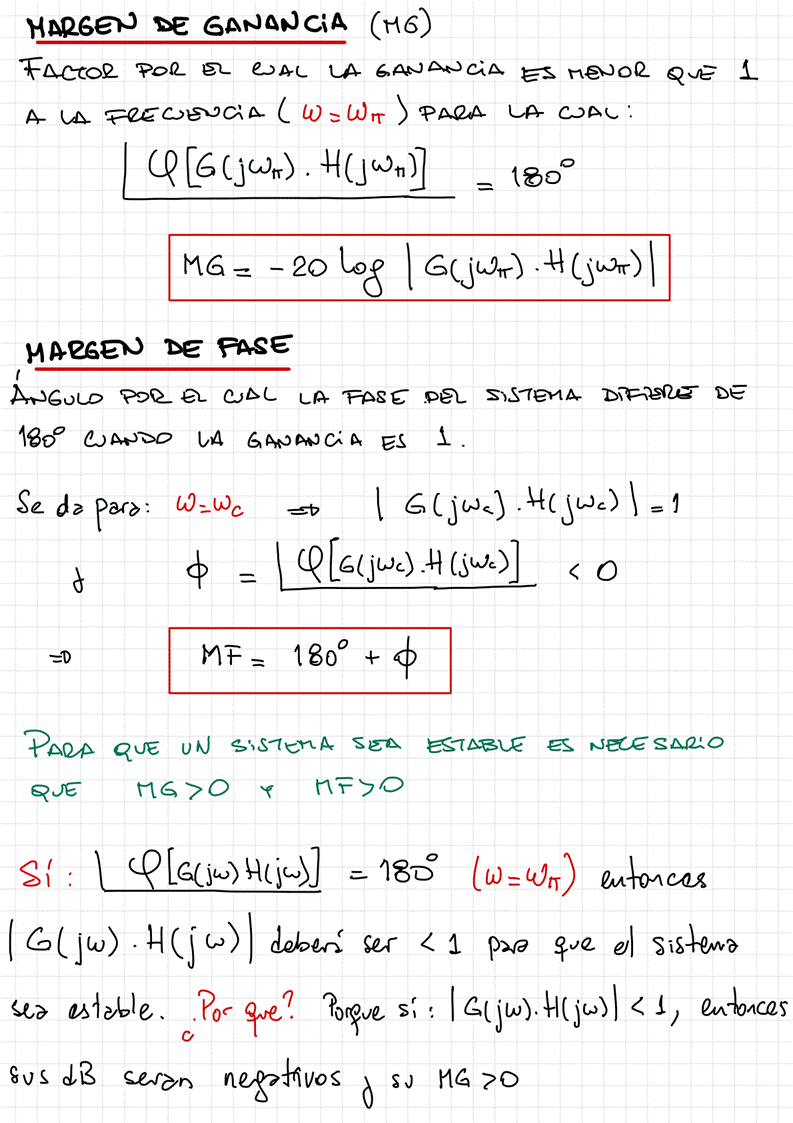 MARGEN DE GANANCIA (MG)
FACTOR POR EL CUAL LA GANANCIA ES MENOR QUE 1
A LA FRECUENCIA ( ω=ωπ ) PARA LA CUAL:
φ[G(jωπ).H(jωπ)] = 180°
MG = -20 log |G(jωπ).H(jωπ)|
MARGEN DE FASE
ÁNGULO POR EL CUAL LA FASE DEL SISTEMA DIFIERE DE
180° CUANDO LA GANANCIA ES 1.
Se da para: ω=ωc ⇒ |G(jωc).H(jωc)| = 1
y ϕ = φ[G(jωc).H(jωc)] < 0
⇒ MF = 180° + ϕ
PARA QUE UN SISTEMA SEA ESTABLE ES NECESARIO
QUE MG>0 Y MF>0
Sí: φ[G(jω)H(jω)] = 180° (ω=ωπ) entonces
|G(jω).H(jω)| deberá ser < 1 para que el sistema
sea estable. ¿Por que? Porque sí: |G(jω).H(jω)| < 1, entonces
sus dB seran negativos y su MG>0